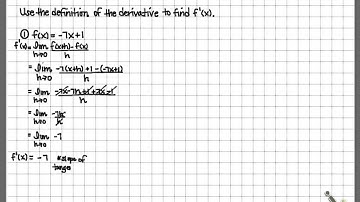 Use the definition of the derivative to find f'(x).
① f(x) = -7x+1
f'(x) = lim h→0 f(x+h)-f(x) / h
= lim h→0 -7(x+h)+1-(-7x+1) / h
= lim h→0 -7x-7h+1+7x-1 / h
= lim h→0 -7h / h
= lim h→0 -7
f'(x) = -7 slope of
tangent